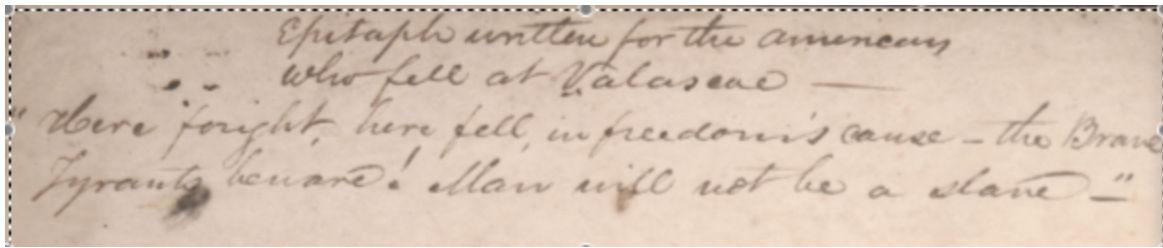 Epitaph written for the americans
who fell at Valascae —
" Here fought, here fell, in freedom's cause – the Brave
Tyrants beware! Man will not be a slave –"